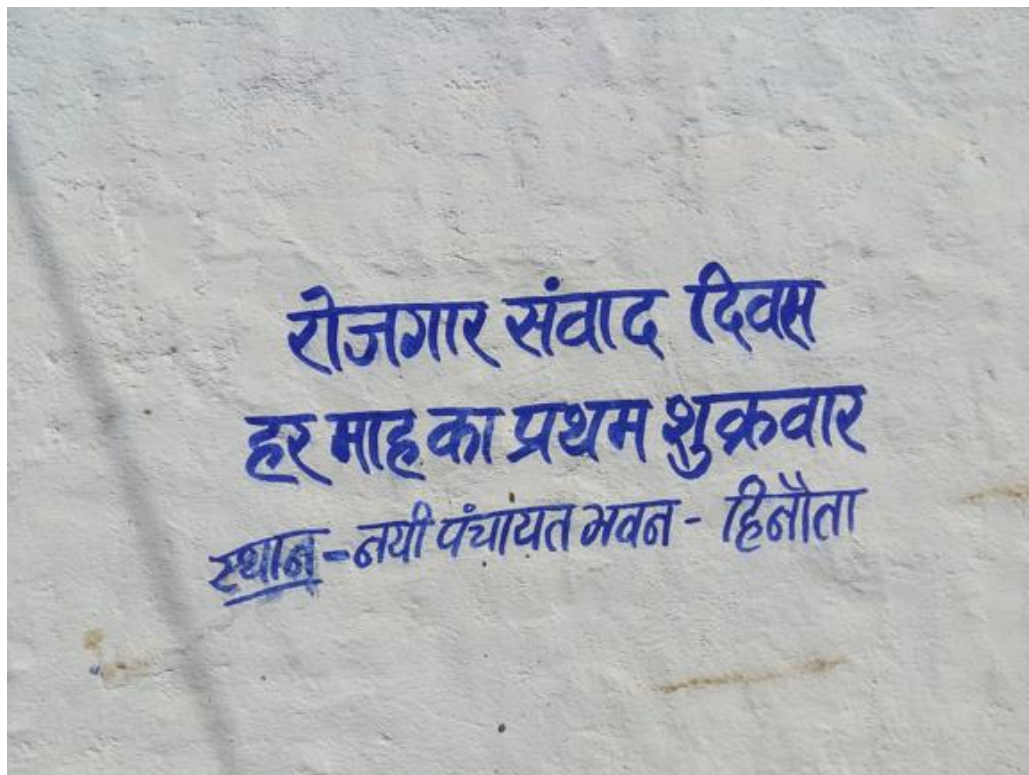 रोजगार संवाद दिवस
हर माह का प्रथम शुक्रवार
स्थान - नयी पंचायत भवन - हिनौता